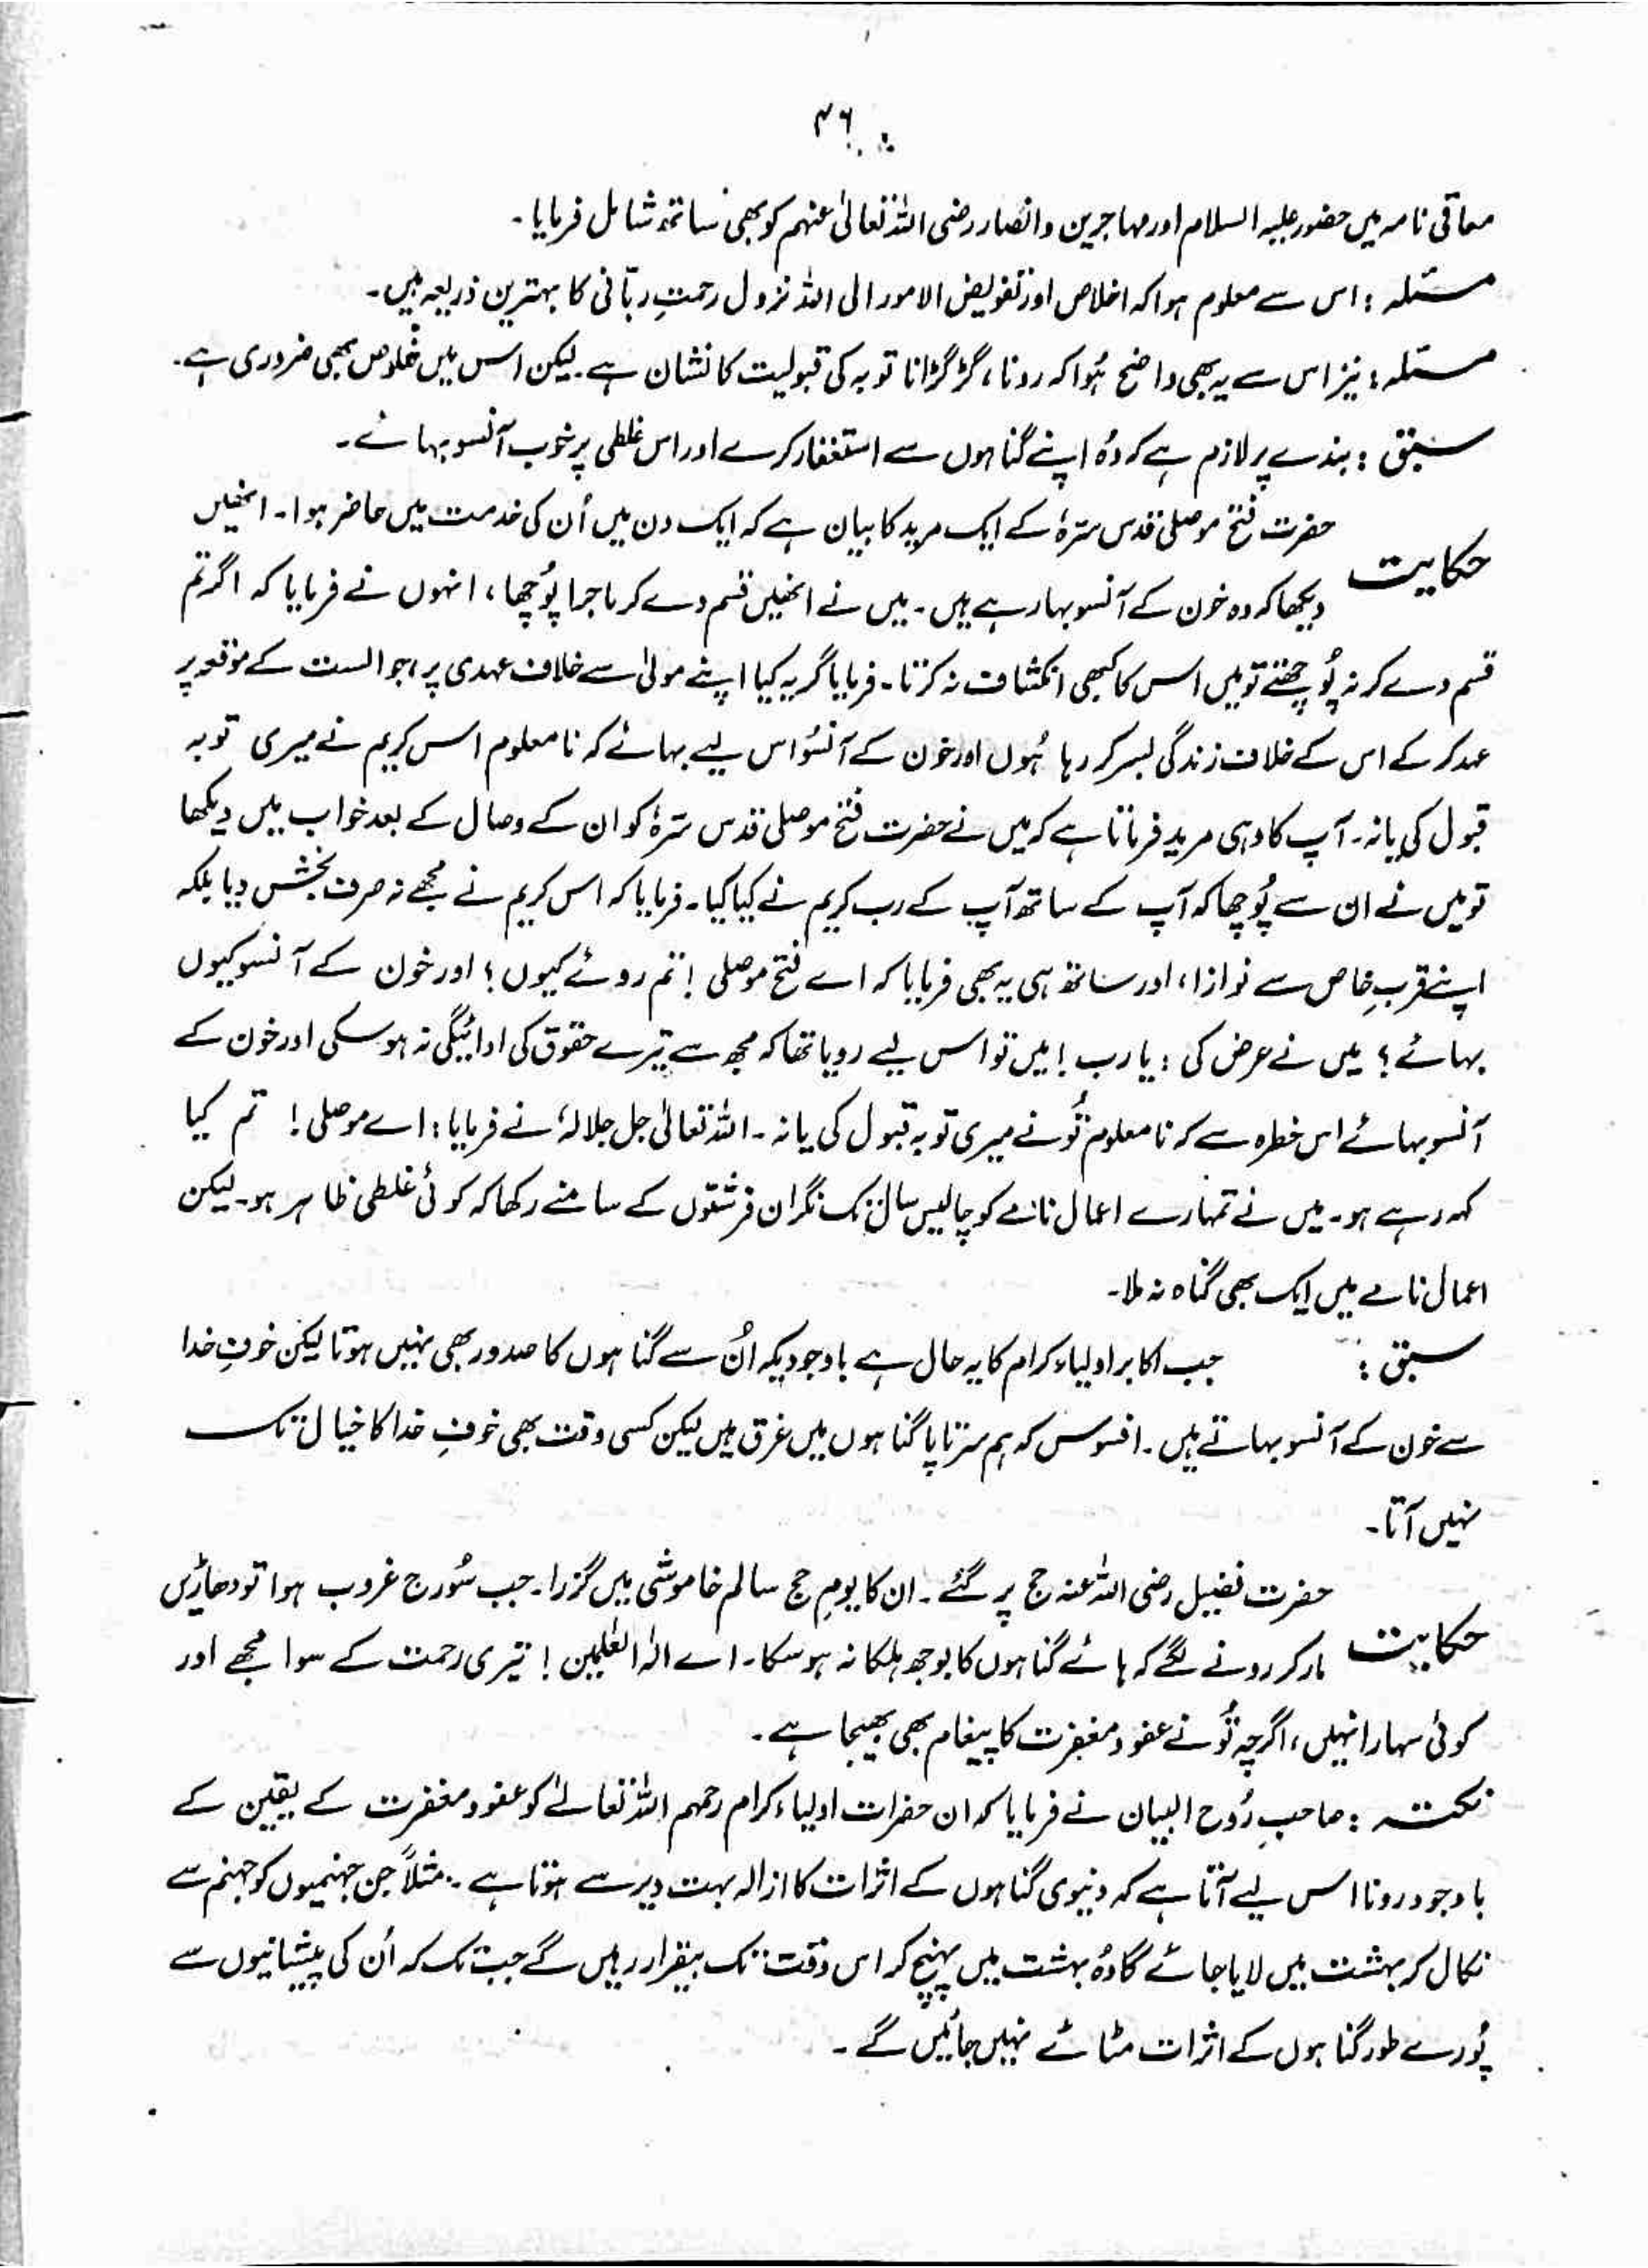 ۴۶
معافی نامہ میں حضور علیہ السلام اور مہاجرین و انصار رضی اللہ تعالیٰ عنہم کو بھی ساتھ شامل فرمایا۔
مسئلہ : اس سے معلوم ہوا کہ اخلاص اور تفویض الامور الی اللہ نزول رحمتِ ربّانی کا بہترین ذریعہ ہیں۔
مسئلہ : نیز اس سے یہ بھی واضح ہُوا کہ رونا، گڑگڑانا توبہ کی قبولیت کا نشان ہے۔ لیکن اس میں خلوص بھی ضروری ہے۔
سبق : بندے پر لازم ہے کہ وُہ اپنے گناہوں سے استغفار کرے اور اس غلطی پر خوب آنسو بہائے۔
حضرت فتح موصلی قدس سّرہٗ کے ایک مرید کا بیان ہے کہ ایک دن میں اُن کی خدمت میں حاضر ہوا۔ انھیں
حکایت دیکھا کہ وہ خون کے آنسو بہا رہے ہیں۔ میں نے انھیں قسم دے کر ماجرا پُوچھا، انہوں نے فرمایا کہ اگر تم
قسم دے کر نہ پُوچھتے تو میں اس کا کبھی انکشاف نہ کرتا۔ فرمایا گریہ کیا اپنے مولیٰ سے خلاف عہدی پر، جو الست کے موقعہ پر
عہد کر کے اس کے خلاف زندگی بسر کر رہا ہُوں اور خون کے آنسُو اس لیے بہائے کہ نامعلوم اس کریم نے میری توبہ
قبول کی یا نہ۔ آپ کا وہی مرید فرماتا ہے کہ میں نے حضرت فتح موصلی قدس سّرہٗ کو ان کے وصال کے بعد خواب میں دیکھا
تو میں نے ان سے پُوچھا کہ آپ کے ساتھ آپ کے رب کریم نے کیا کیا۔ فرمایا کہ اس کریم نے مجھے نہ صرف بخش دیا بلکہ
اپنے قربِ خاص سے نوازا، اور ساتھ ہی یہ بھی فرمایا کہ اے فتح موصلی ! تم روئے کیوں ؟ اور خون کے آنسو کیوں
بہائے ؟ میں نے عرض کی : یا رب ! میں تو اس لیے رویا تھا کہ مجھ سے تیرے حقوق کی ادائیگی نہ ہو سکی اور خون کے
آنسو بہائے اس خطرہ سے کہ نامعلوم تُو نے میری توبہ قبول کی یا نہ۔ اللہ تعالیٰ جل جلالہٗ نے فرمایا : اے موصلی ! تم کیا
کہہ رہے ہو۔ میں نے تمہارے اعمال نامے کو چالیس سال تک نگران فرشتوں کے سامنے رکھا کہ کوئی غلطی ظاہر ہو۔ لیکن
اعمال نامے میں ایک بھی گناہ نہ ملا۔
سبق : جب اکابر اولیاء کرام کا یہ حال ہے باوجودیکہ اُن سے گناہوں کا صدور بھی نہیں ہوتا لیکن خوفِ خدا
سے خون کے آنسو بہاتے ہیں۔ افسوس کہ ہم سر تا پا گناہوں میں غرق ہیں لیکن کسی وقت بھی خوفِ خدا کا خیال تک
نہیں آتا۔
حضرت فضیل رضی اللہ عنہ حج پر گئے۔ ان کا یومِ حج سالم خاموشی میں گزرا۔ جب سُورج غروب ہوا تو دھاڑیں
حکایت مار کر رونے لگے کہ ہائے گناہوں کا بوجھ ہلکا نہ ہو سکا۔ اے الٰہ العٰلمین ! تیری رحمت کے سوا مجھے اور
کوئی سہارا نہیں، اگرچہ تُو نے عفو و مغفرت کا پیغام بھی بھیجا ہے۔
نکتہ : صاحبِ رُوح البیان نے فرمایا کہ ان حضرات اولیاء کرام رحمہم اللہ تعالےٰ کو عفو و مغفرت کے یقین کے
باوجود رونا اس لیے آتا ہے کہ دنیوی گناہوں کے اثرات کا ازالہ بہت دیر سے ہوتا ہے۔ مثلاً جن جہنمیوں کو جہنم سے
نکال کر بہشت میں لایا جائے گا وُہ بہشت میں پہنچ کر اس وقت تک بیقرار رہیں گے جب تک کہ اُن کی پیشانیوں سے
پُورے طور گناہوں کے اثرات مٹائے نہیں جائیں گے۔